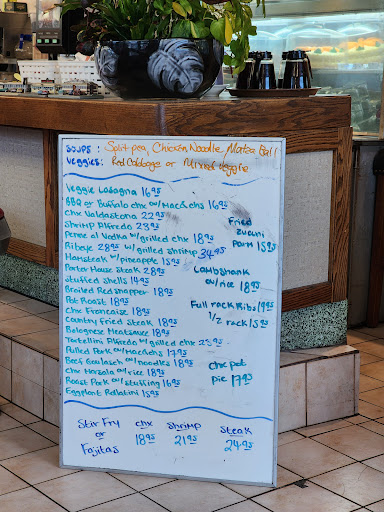 SOUPS: Split pea, Chicken Noodle, Matza Ball
Veggies: Red Cabbage or Mixed Veggie
Veggie Lasagna 16.95
BBQ or Buffalo chx w/Mac&chs 16.95
Chx Valdastona 22.95
Shrimp Alfredo 23.95
Penne al Vodka w/grilled chx 18.95
Ribeye 28.95 w/grilled shrimp 34.95
Hamsteak w/pineapple 15.95
Porter House Steak 28.95
Stuffed Shells 14.95
Broiled Red snapper 18.95
Pot Roast 18.95
Chx Francaise 18.95
Country Fried Steak 18.95
Bolognese Meatsauce 18.95
Tortellini Alfredo w/grilled chx 25.95
Pulled Pork w/Mac&chs 17.95
Beef Goulash w/noodles 18.95
Chx Marsala w/rice 18.95
Roast Pork w/stuffing 16.95
Eggplant Rollatini 15.95
Fried
zucuni
Parm 15.95
Lambshank
w/rice 18.95
Full rack Ribs 19.95
1/2 rack 15.95
chx pot
pie 17.95
Stir Fry
or
Fajitas
chx
18.95
Shrimp
21.95
Steak
24.95